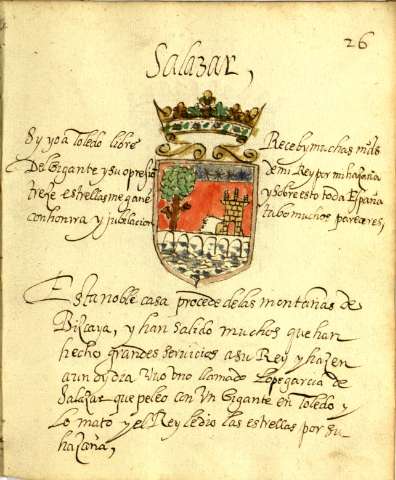 26
Salazar,
Sy yo a Toledo libre
De Gigante y su opresió
treze estrellas me gané
con honrra y jubilacion
Recebi muchas mds
de mi Rey por mi hazaña
y sobre esto toda España
tubo muchos pareceres,
Esta noble casa procede de las montañas de
Bizcaya, y han salido muchos que han
hecho grandes servicios a su Rey y hazen
aun oy dia Uno llamado Lope garcia de
Salazar que peleo con Un Gigante en Toledo y
lo mato y el Rey le dio las estrellas por su
hazaña,